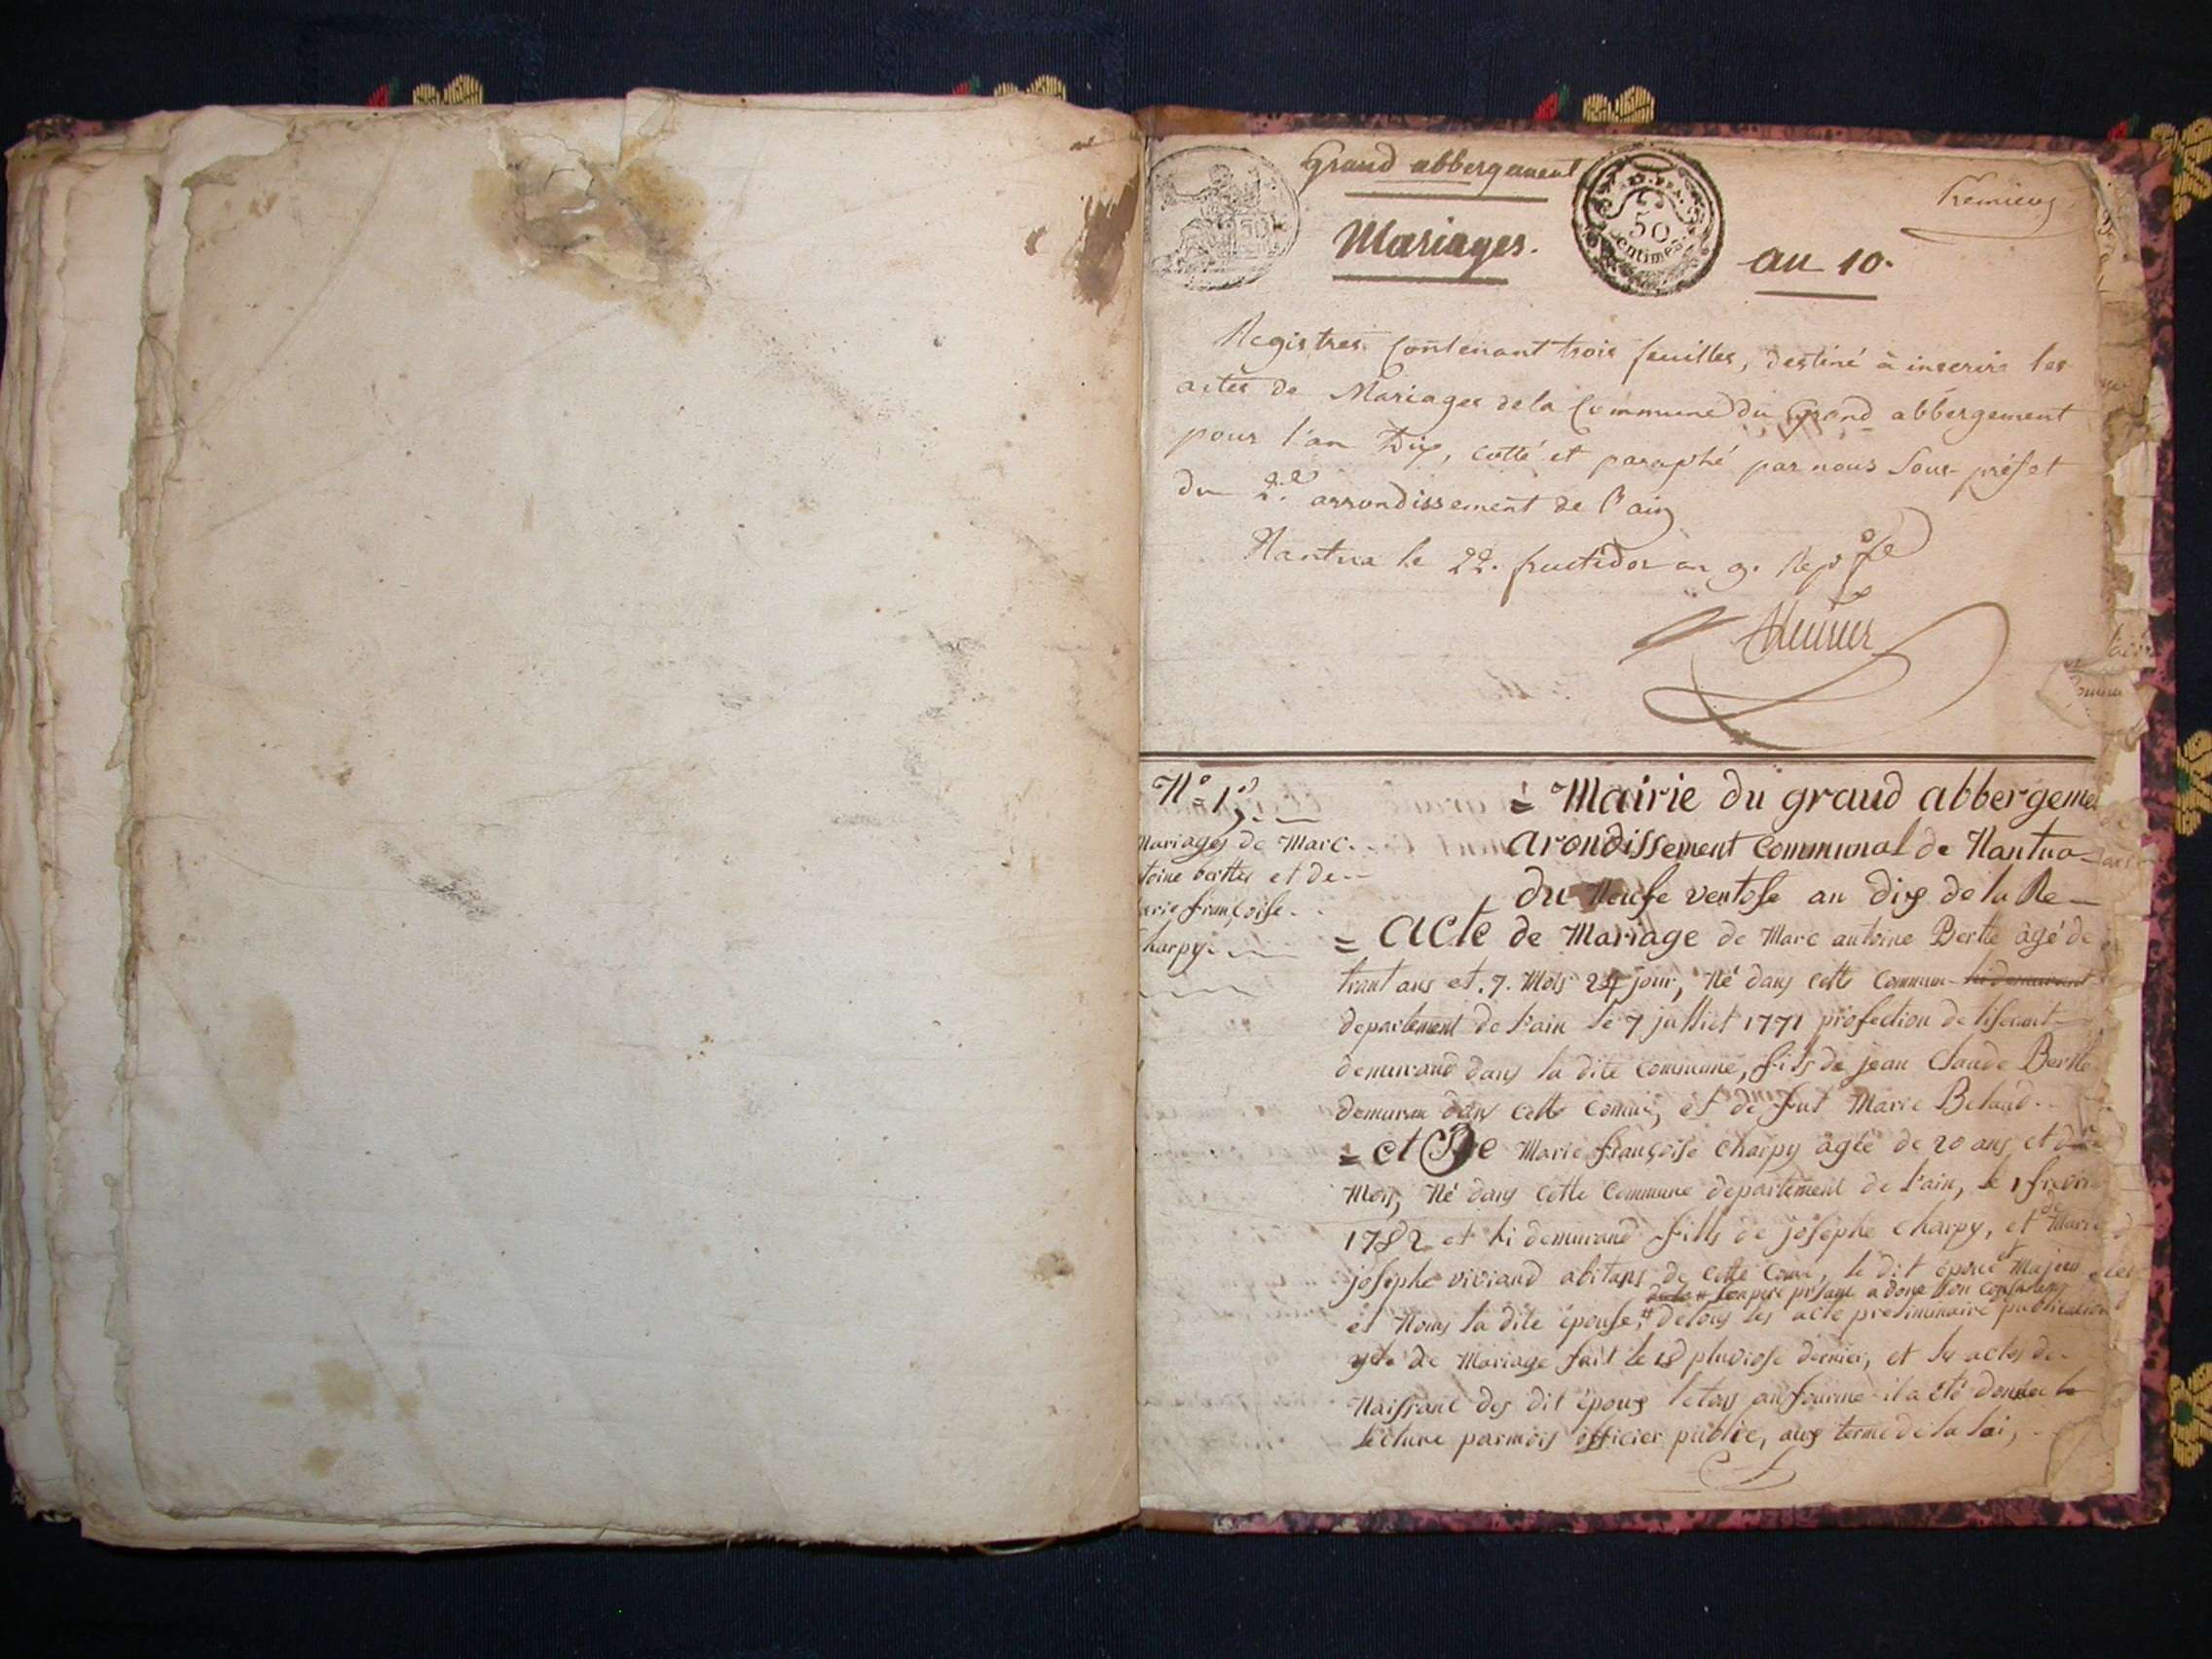 Grand abbergement
Premier
50
centimes
Mariages.
an 10.
Registres Contenant trois feuilles, destiné à inscrire les
actes de Mariages de la Commune du Grand abbergement
pour l'an Dix, cotté et paraphé par nous Sous-préfet
du 2.e arrondissement de l'ain
Nantua le 22. fructidor an 9.
N.o 1.er
Mariages de Marc
toine berthe et de
arie françoise
harpy
= Mairie du grand abbergeme
arondissement Communal de Nantua
du Neufe ventose an dix de la Re
= Acte de Mariage de Marc antoine Berthe agé de
trant ans et 7. Mois 24 jour, Né dans cette Commun
departement de l'ain le 7 julliet 1771 profection de
demurand dans la dite Commune, fils de jean Claude Berthe
demuran dans cette Comune, et de fut Marie Beland
= et De Marie françoise Charpy agée de 20 ans et
Mois, Né dans Cette Commune departement de l'ain, le 1
1782 et hi demurand fills de josephe Charpy, et de Marie
josephe viviand abitans de Cette Comu, le dit époux et Majeur
son pere présant a done son
et Nous la dite épouse, de tous les acte preliminaire publication
de Mariage fait le 18 pluviose dernier, et les actes de
Naissanc des dit époux le tous an fourme il a été donnée
lecture par mois officier public, aux terme de la loi,